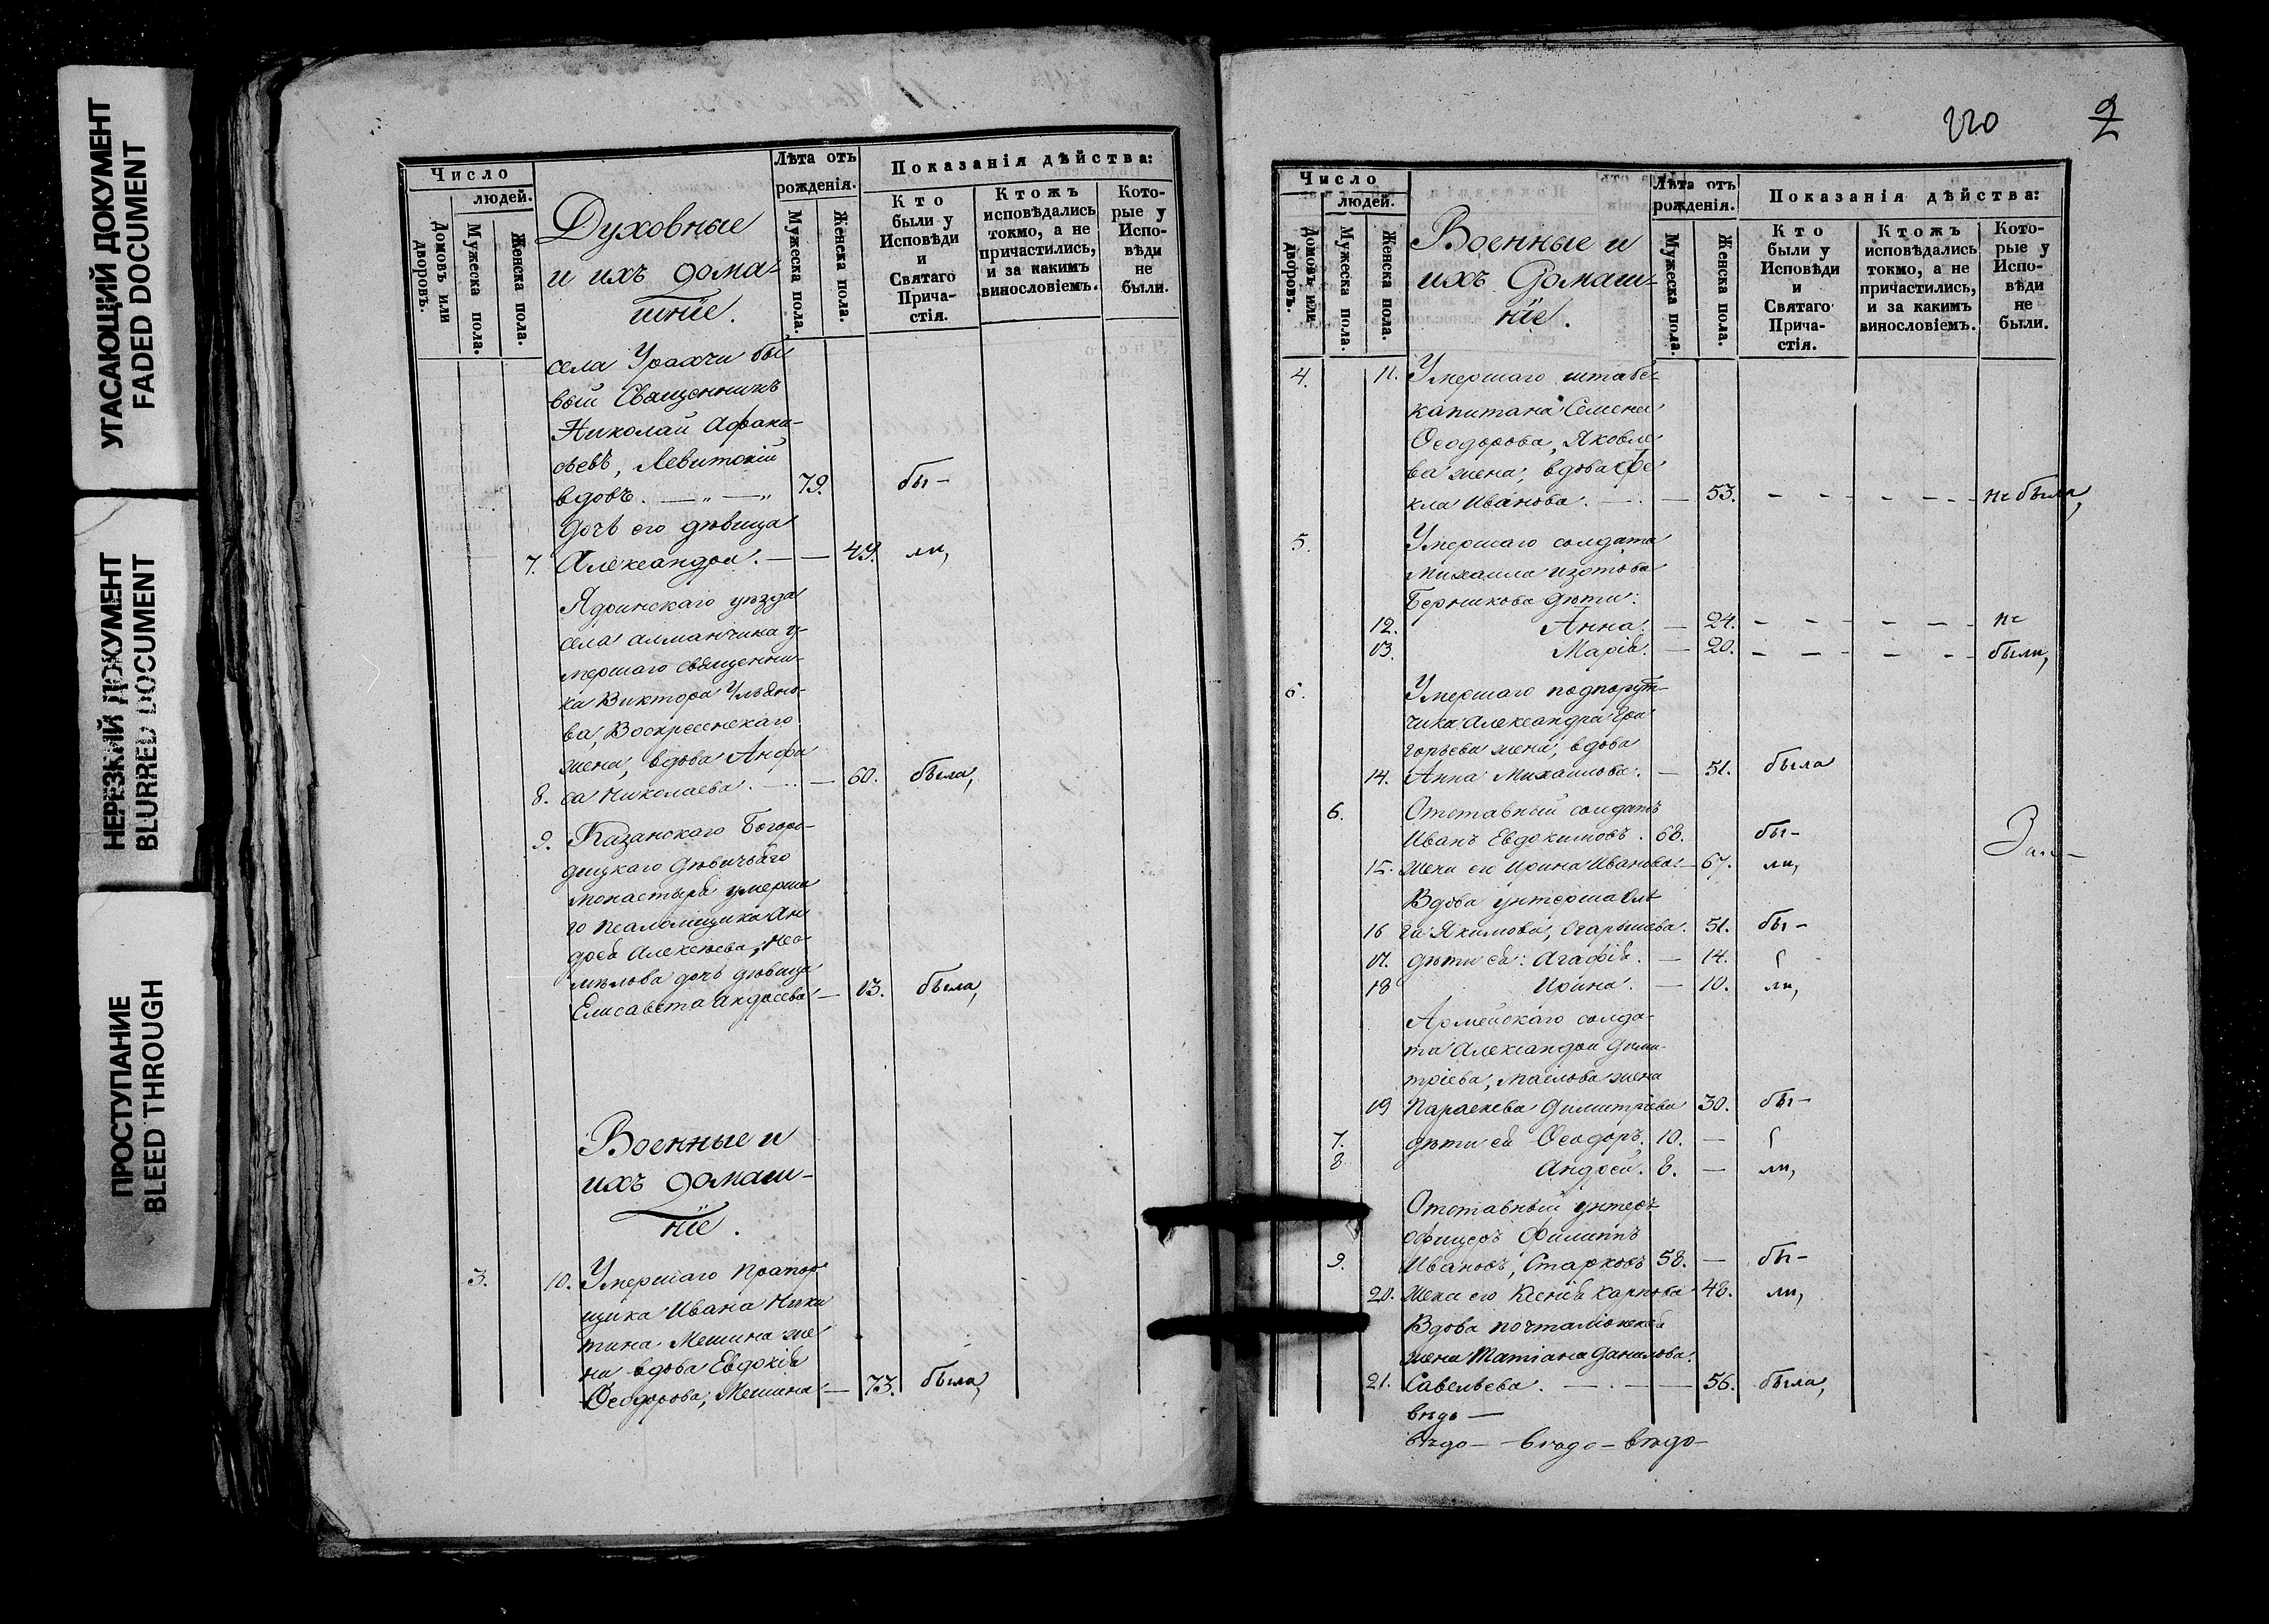 УГАСАЮЩИЙ ДОКУМЕНТ
FADED DOCUMENT
НЕРЕЗКИЙ ДОКУМЕНТ
BLURRED DOCUMENT
ПРОСТУПАНИЕ
BLEED THROUGH
Число
людей.
Домовъ или дворовъ.
Мужеска пола.
Женска пола.
Духовные
и ихъ дома-
шніе.
Лѣта отъ
рожденія.
Мужеска пола.
Женска пола.
Показанія дѣйства:
Кто
были у
Исповѣди
и
Святаго
Прича-
стія.
Ктожъ
исповѣдались
токмо, а не
причастились,
и за какимъ
винословіемъ.
Кото-
рые у
Испо-
вѣди
не
были.
села Урахчи бы
вый Священникъ
Николай Афана-
сьевъ, Левитскій
вдовъ. — „ — „ 79. бы-
дочь его дѣвица
7. Александра. — — 49. ли,
Ядринскаго уѣзда
села Алманчина у-
мершаго священни-
ка Виктора Ульяно-
ва, Воскресенскаго
жена, вдова Анфи
8. са Николаева. — 60. была,
9. Казанскаго Богоро-
дицкаго дѣвичьяго
монастыря умерша
го псаломщика Ан
дрея Алексѣева,
дочь дѣвица
Елисавета Андреева — 13. была,
Военные и
ихъ домаш-
ніе.
3. 10. Умершаго Прапор
щика Ивана Ники
тина Мешина же
на вдова Евдокія
Ѳеодорова, Мешина — 73. была,
220 2
Число
людей.
Домовъ или дворовъ.
Мужеска пола.
Женска пола.
Военные и
ихъ Домаш-
ніе.
Лѣта отъ
рожденія.
Мужеска пола.
Женска пола.
Показанія дѣйства:
Кто
были у
Исповѣди
и
Святаго
Прича-
стія.
Ктожъ
исповѣдались
токмо, а не
причастились,
и за какимъ
винословіемъ.
Кото-
рые у
Испо-
вѣди
не
были.
4. 11. Умершаго штабс-
капитана Семена
Ѳеодорова, Яковле
ва жена, вдова Ѳе
кла Иванова. — — 53. - - - - - - не была,
5. Умершаго солдата
Михаила Изотова
Берникова дѣти:
12. Анна. — 24. - - - - - - не
13. Марія. — 20. - - - - - были,
6. Умершаго подпорут-
чика Александра Гри
горьева жена, вдова
14. Анна Михаилова. — 51. была
6. Отставный солдатъ
Иванъ Евдокимовъ. 68. бы-
15. жена его Ирина Иванова. — 67. ли,
Вдова унтерша Оль
16 га Якимова, 51. бы-
17. дѣти ея: Агафія. — 14.
18 Ирина. — 10. ли,
Армейскаго солда-
та Александра Дими-
тріева, Маслова жена
19 Параскева Димитріева 30. бы-
7. дѣти ея Ѳеодоръ. 10. —
8 Андрей. 8. — ли,
Отставный унтеръ
офицеръ Филиппъ
9. Ивановъ, Старковъ 58. — бы-
20. жена его Ксенія Карпова 48. ли,
Вдова почталіонская
жена Татіана Данилова.
21. Савельева. — — — 56. была,
вѣдо —
вѣдо — вѣдо — вѣдо —